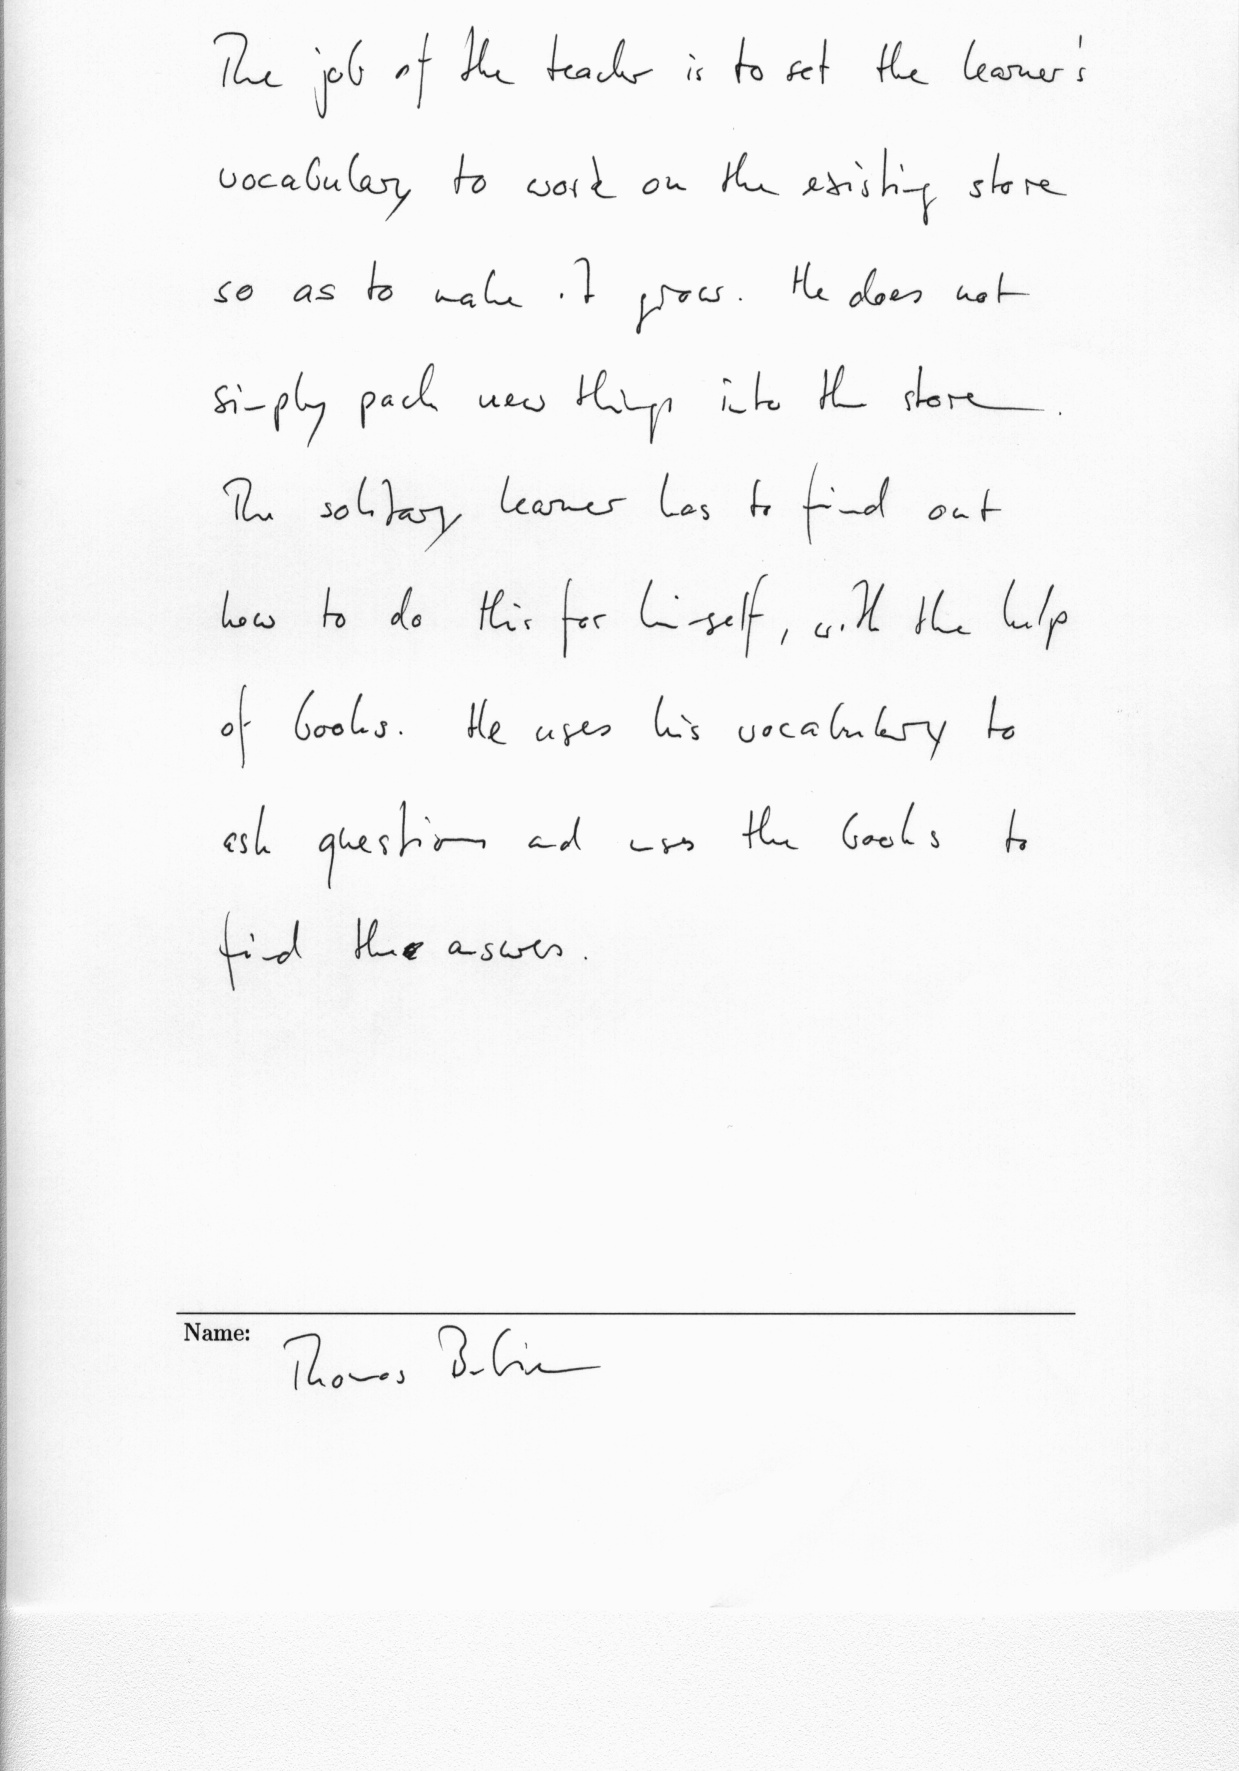 The job of the teacher is to set the learner's
vocabulary to work on the existing store
so as to make it grow. He does not
simply pack new things into the store.
The solitary learner has to find out
how to do this for himself, with the help
of books. He uses his vocabulary to
ask questions and uses the books to
find the answers.
Name: Thomas